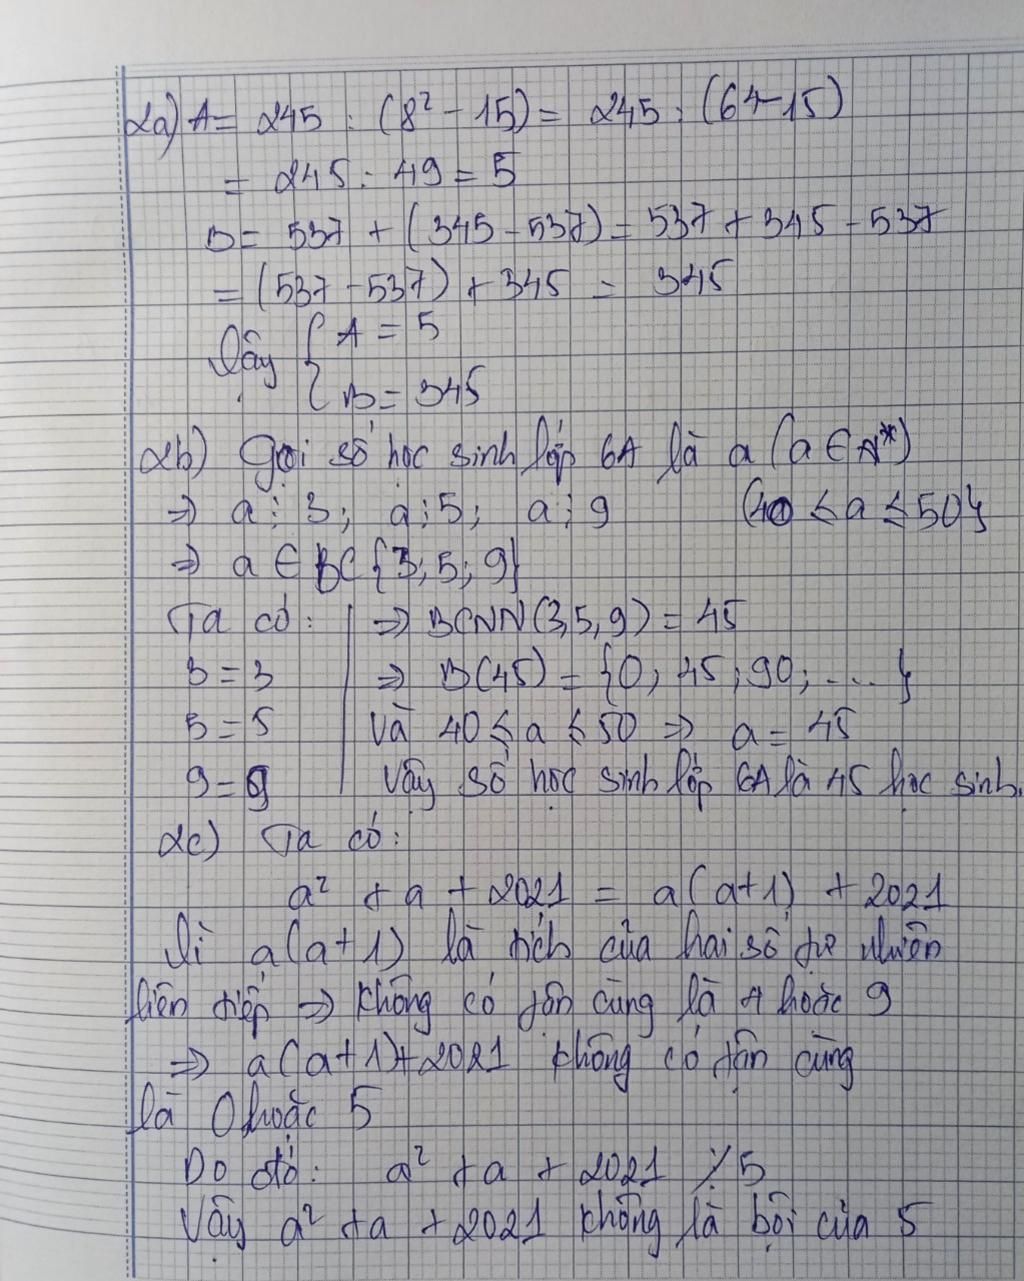 2a) A = 245 : (8² - 15) = 245 : (64-15)
= 245 : 49 = 5
B = 537 + (345 - 537) = 537 + 345 - 537
= (537 - 537) + 345 = 345
Vậy { A = 5
B = 345
2b) Gọi số học sinh lớp 6A là a (a ∈ N*)
=> a ⋮ 3; a ⋮ 5; a ⋮ 9 (40 ≤ a ≤ 50}
=> a ∈ BC {3; 5; 9}
Ta có: | => BCNN(3,5,9) = 45
3 = 3 | => B(45) = {0; 45; 90; .... }
5 = 5 | Và 40 ≤ a ≤ 50 => a = 45
9 = 9 | Vậy số học sinh lớp 6A là 45 học sinh.
2c) Ta có:
a² + a + 2021 = a(a+1) + 2021
Vì a(a+1) là tích của hai số tự nhiên
liên tiếp => không có tận cùng là 4 hoặc 9
=> a(a+1)+2021 không có tận cùng
là 0 hoặc 5
Do đó: a² + a + 2021 ⋮̸ 5
Vậy a² + a + 2021 không là bội của 5